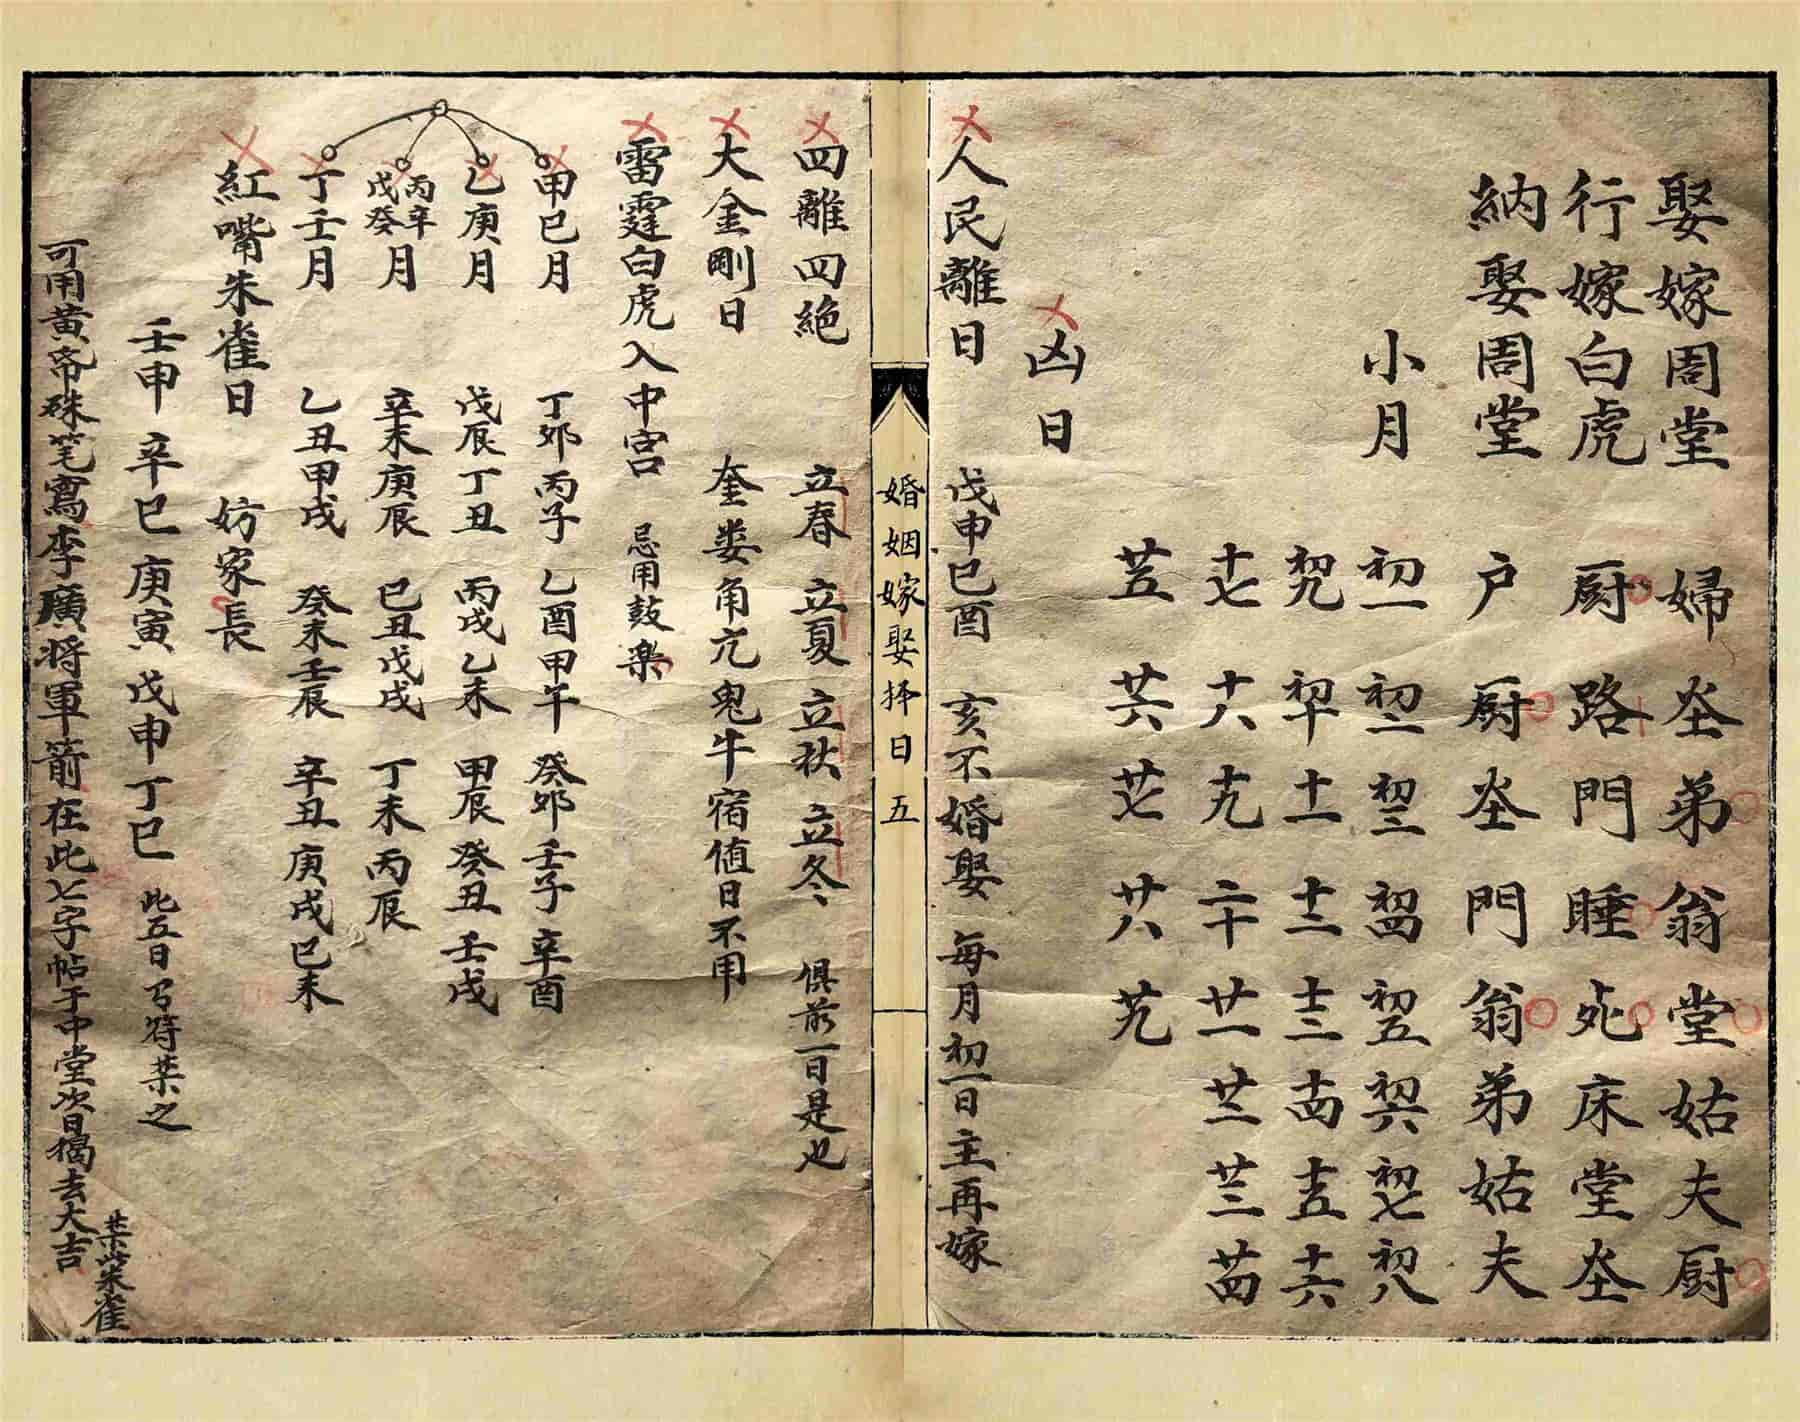 娶嫁周堂　婦灶弟翁堂姑夫厨
行嫁白虎　厨路門睡死床堂灶
納娶周堂　户厨灶門翁弟姑夫
小月　初一 初二 初三 初四 初五 初六 初七 初八
初九 初十 十一 十二 十三 十四 十五 十六
十七 十八 十九 二十 廿一 廿二 廿三 廿四
廿五 廿六 廿七 廿八 廿九
凶日
人民離日　戊申己酉　亥不婚娶　每月初一日主再嫁
婚姻嫁娶择日 五
四離四絶　立春 立夏 立秋 立冬　俱前一日是也
大金剛日　奎娄角亢鬼牛宿值日不用
雷霆白虎入中宫　忌用鼓楽
甲己月　丁卯 丙子 乙酉 甲午 癸卯 壬子 辛酉
乙庚月　戊辰 丁丑 丙戌 乙未 甲辰 癸丑 壬戌
丙辛戊癸月　辛未 庚辰 己丑 戊戌 丁未 丙辰
丁壬月　乙丑 甲戌 癸未 壬辰 辛丑 庚戌 己未
紅嘴朱雀日　妨家長
壬申 辛巳 庚寅 戊申 丁巳　此五日 符禁之
可用黄帋硃笔寫李廣将軍箭在此七字帖于中堂次日揭去大吉
禁此朱雀